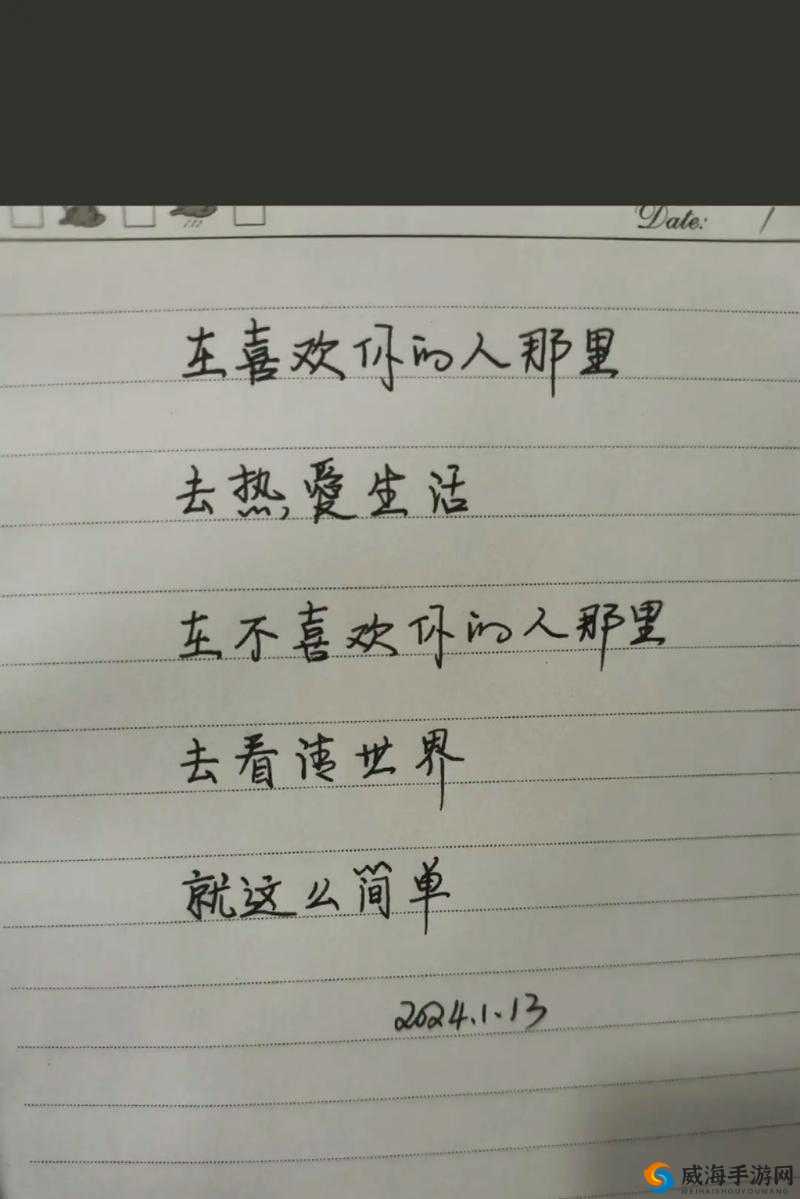 Date: /
在喜欢你的人那里
去热爱生活
在不喜欢你的人那里
去看清世界
就这么简单
2024.1.13
威海手游网
WEIHAISHOUYOUWANG